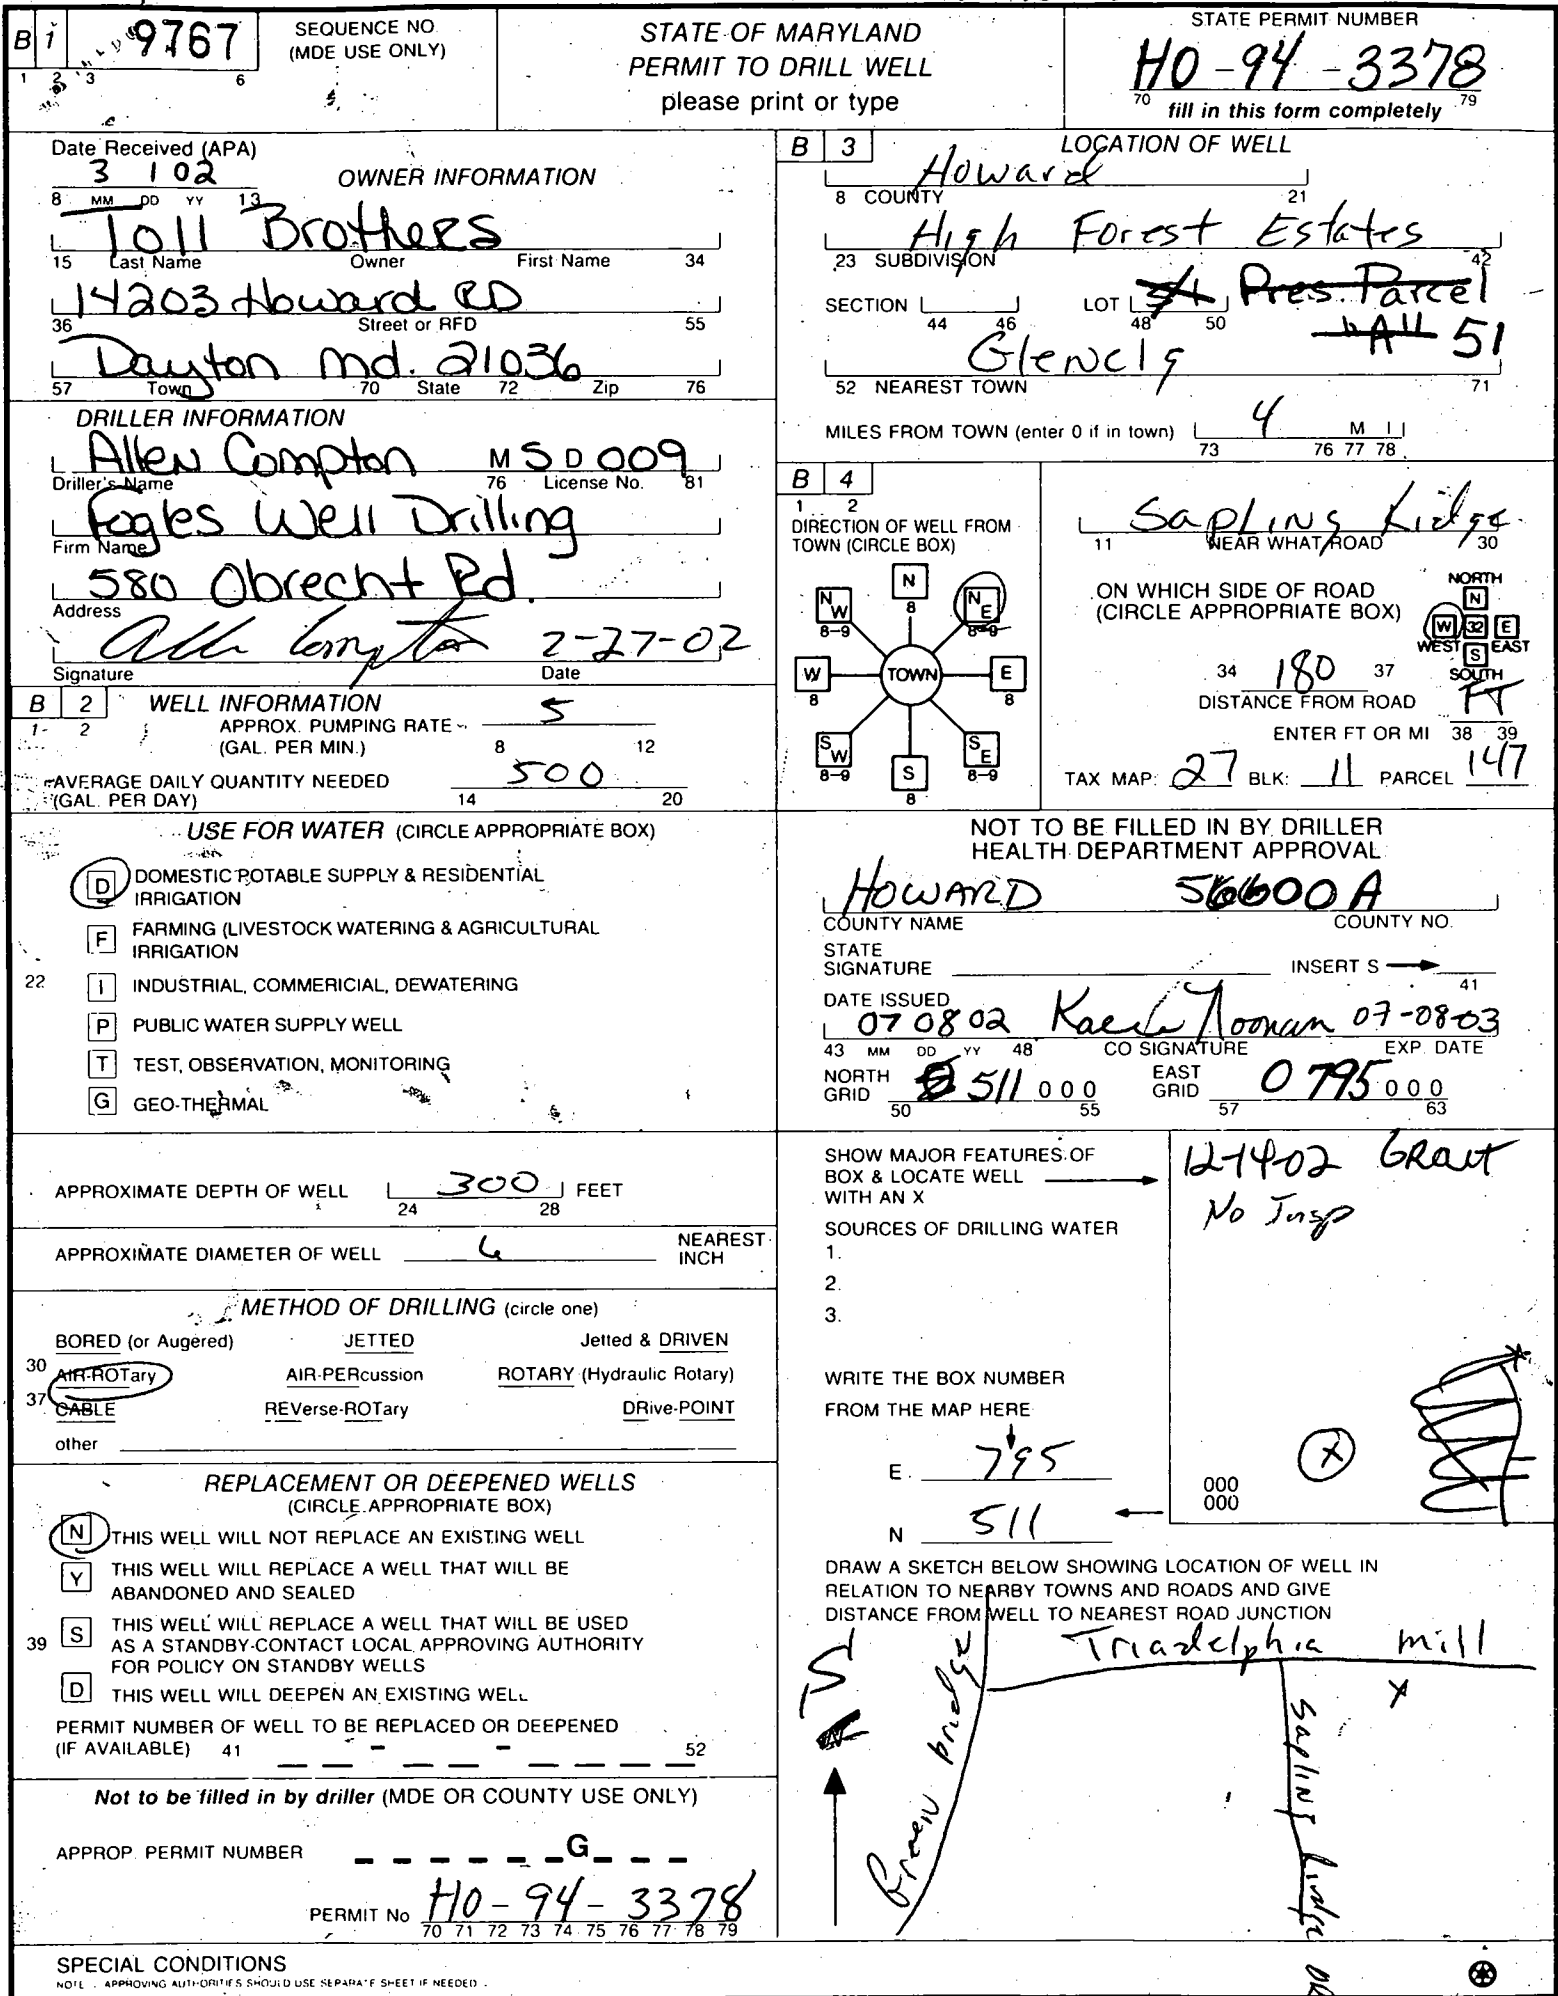 B 1 9767 SEQUENCE NO. (MDE USE ONLY)
1 2 3 6
STATE OF MARYLAND
PERMIT TO DRILL WELL
please print or type
STATE PERMIT NUMBER
HO-94-3378
70 fill in this form completely 79
Date Received (APA)
3 1 02
8 MM DD YY 13
OWNER INFORMATION
Toll Brothers
15 Last Name Owner First Name 34
14203 Howard RD
36 Street or RFD 55
Dayton Md. 21036
57 Town 70 State 72 Zip 76
DRILLER INFORMATION
Allen Compton MSD009
Driller's Name 76 License No. 81
Fogles Well Drilling
Firm Name
580 Obrecht Rd.
Address
Allen Compton 2-27-02
Signature Date
B 2 WELL INFORMATION
1 2
APPROX. PUMPING RATE 5
(GAL. PER MIN.) 8 12
AVERAGE DAILY QUANTITY NEEDED 500
(GAL. PER DAY) 14 20
USE FOR WATER (CIRCLE APPROPRIATE BOX)
D DOMESTIC POTABLE SUPPLY & RESIDENTIAL
IRRIGATION
F FARMING (LIVESTOCK WATERING & AGRICULTURAL
IRRIGATION
22 I INDUSTRIAL, COMMERICIAL, DEWATERING
P PUBLIC WATER SUPPLY WELL
T TEST, OBSERVATION, MONITORING
G GEO-THERMAL
APPROXIMATE DEPTH OF WELL 300 FEET
24 28
APPROXIMATE DIAMETER OF WELL 6 NEAREST
INCH
METHOD OF DRILLING (circle one)
BORED (or Augered) JETTED Jetted & DRIVEN
30 AIR-ROTary AIR-PERcussion ROTARY (Hydraulic Rotary)
37 CABLE REVerse-ROTary DRive-POINT
other
REPLACEMENT OR DEEPENED WELLS
(CIRCLE APPROPRIATE BOX)
N THIS WELL WILL NOT REPLACE AN EXISTING WELL
Y THIS WELL WILL REPLACE A WELL THAT WILL BE
ABANDONED AND SEALED
39 S THIS WELL WILL REPLACE A WELL THAT WILL BE USED
AS A STANDBY-CONTACT LOCAL APPROVING AUTHORITY
FOR POLICY ON STANDBY WELLS
D THIS WELL WILL DEEPEN AN EXISTING WELL
PERMIT NUMBER OF WELL TO BE REPLACED OR DEEPENED
(IF AVAILABLE) 41 - - 52
Not to be filled in by driller (MDE OR COUNTY USE ONLY)
APPROP. PERMIT NUMBER G
PERMIT No HO-94-3378
70 71 72 73 74 75 76 77 78 79
SPECIAL CONDITIONS
NOTE - APPROVING AUTHORITIES SHOULD USE SEPARATE SHEET IF NEEDED -
B 3 LOCATION OF WELL
Howard
8 COUNTY 21
High Forest Estates
23 SUBDIVISION 42
SECTION LOT Pres. Parcel
44 46 48 50 "A" 51
Glenelg
52 NEAREST TOWN 71
MILES FROM TOWN (enter 0 if in town) 4 M I
73 76 77 78
B 4
1 2
DIRECTION OF WELL FROM
TOWN (CIRCLE BOX)
N
8
NW NE
8-9 8-9
W TOWN E
8 8
SW SE
8-9 8-9
S
8
Sapling Ridge
11 NEAR WHAT ROAD 30
ON WHICH SIDE OF ROAD
(CIRCLE APPROPRIATE BOX)
NORTH
N
W 32 E
WEST S EAST
SOUTH
34 180 37
DISTANCE FROM ROAD FT
ENTER FT OR MI 38 39
TAX MAP: 27 BLK: 11 PARCEL 147
NOT TO BE FILLED IN BY DRILLER
HEALTH DEPARTMENT APPROVAL
HOWARD 56600A
COUNTY NAME COUNTY NO.
STATE
SIGNATURE INSERT S
41
DATE ISSUED
070802 Noonan 07-08-03
43 MM DD YY 48 CO SIGNATURE EXP. DATE
NORTH GRID 511 000 EAST GRID 0795 000
50 55 57 63
SHOW MAJOR FEATURES OF
BOX & LOCATE WELL
WITH AN X
12-14-02 Grout
No Insp
SOURCES OF DRILLING WATER
1.
2.
3.
WRITE THE BOX NUMBER
FROM THE MAP HERE
E 795
N 511
000
000
X
DRAW A SKETCH BELOW SHOWING LOCATION OF WELL IN
RELATION TO NEARBY TOWNS AND ROADS AND GIVE
DISTANCE FROM WELL TO NEAREST ROAD JUNCTION
Triadelphia Mill
X
S
N
Green bridge
Sapling Ridge DR